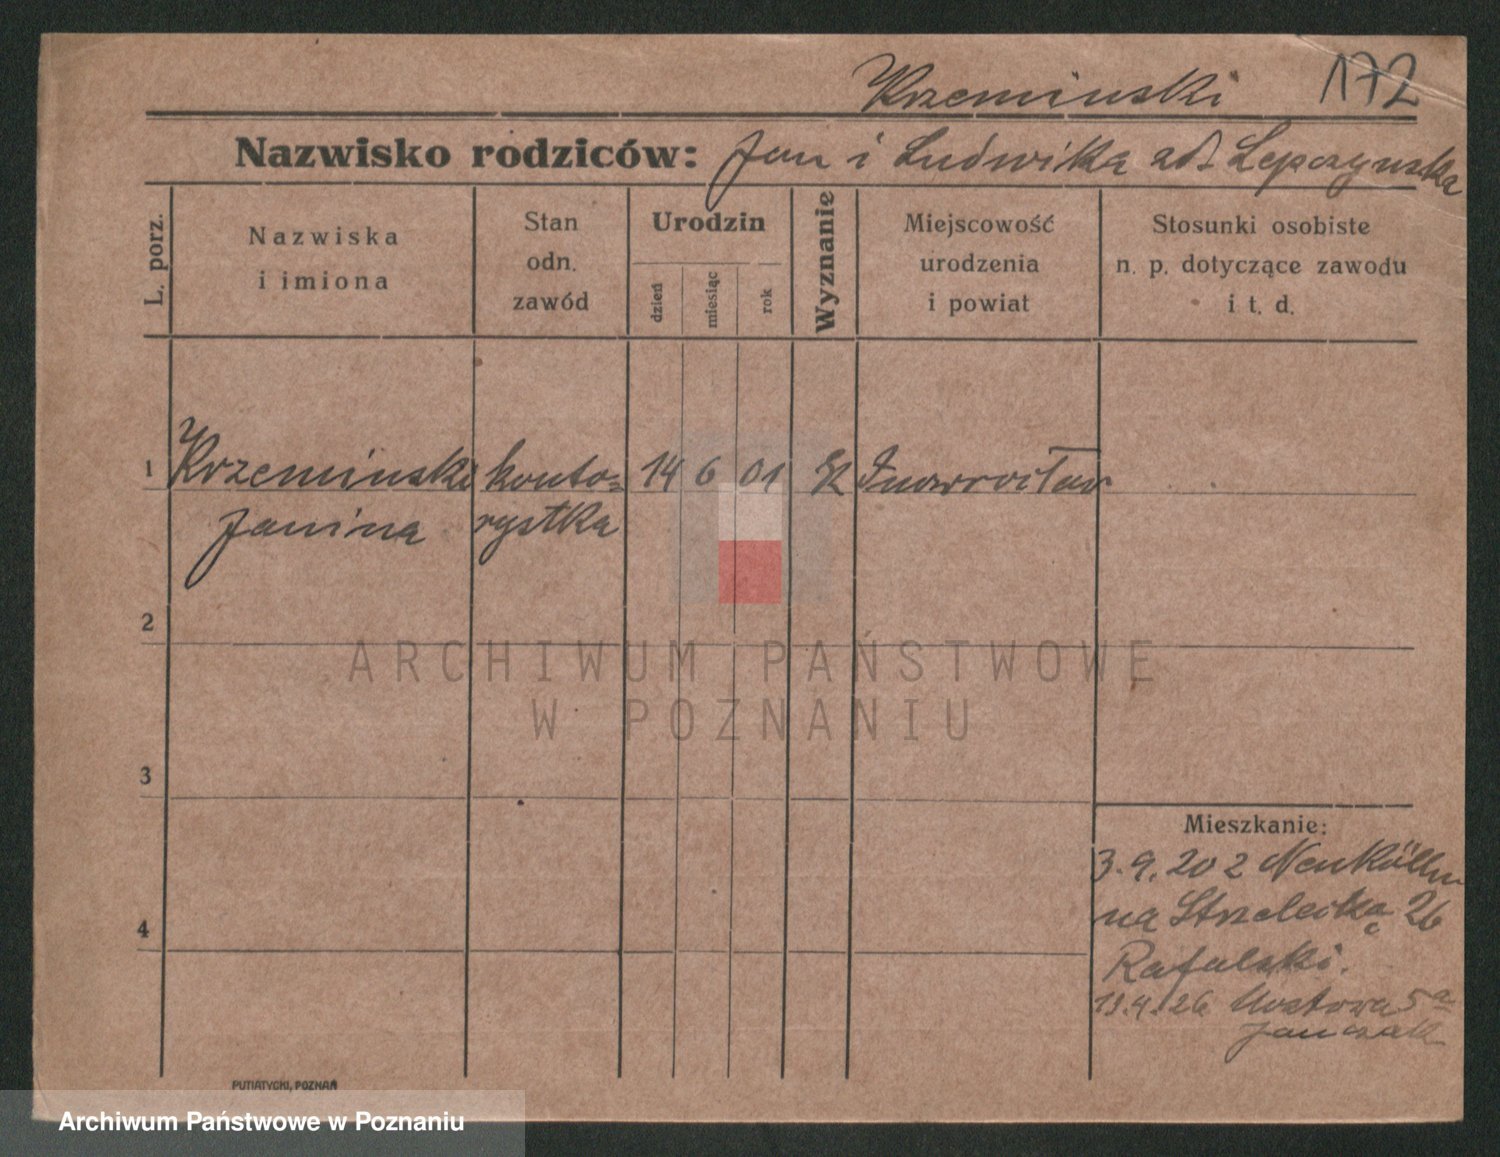 Krzeminski 172
Nazwisko rodziców: Jan i Ludwika
L. porz.
Nazwiska
i imiona
Stan
odn.
zawód
Urodzin
dzień
miesiąc
rok
Wyznanie
Miejscowość
urodzenia
i powiat
Stosunki osobiste
n. p. dotyczące zawodu
i t. d.
1 Krzeminski konto= 14 6 01 Inowrocław
Janina rystka
2
ARCHIWUM PAŃSTWOWE
W POZNANIU
3
Mieszkanie:
3.9.20 z Neukölln
na Strzelecką 26
4
Rafalski.
19.4.26 Mostowa 5a
Janczak
PUTIATYCKI, POZNAŃ
Archiwum Państwowe w Poznaniu